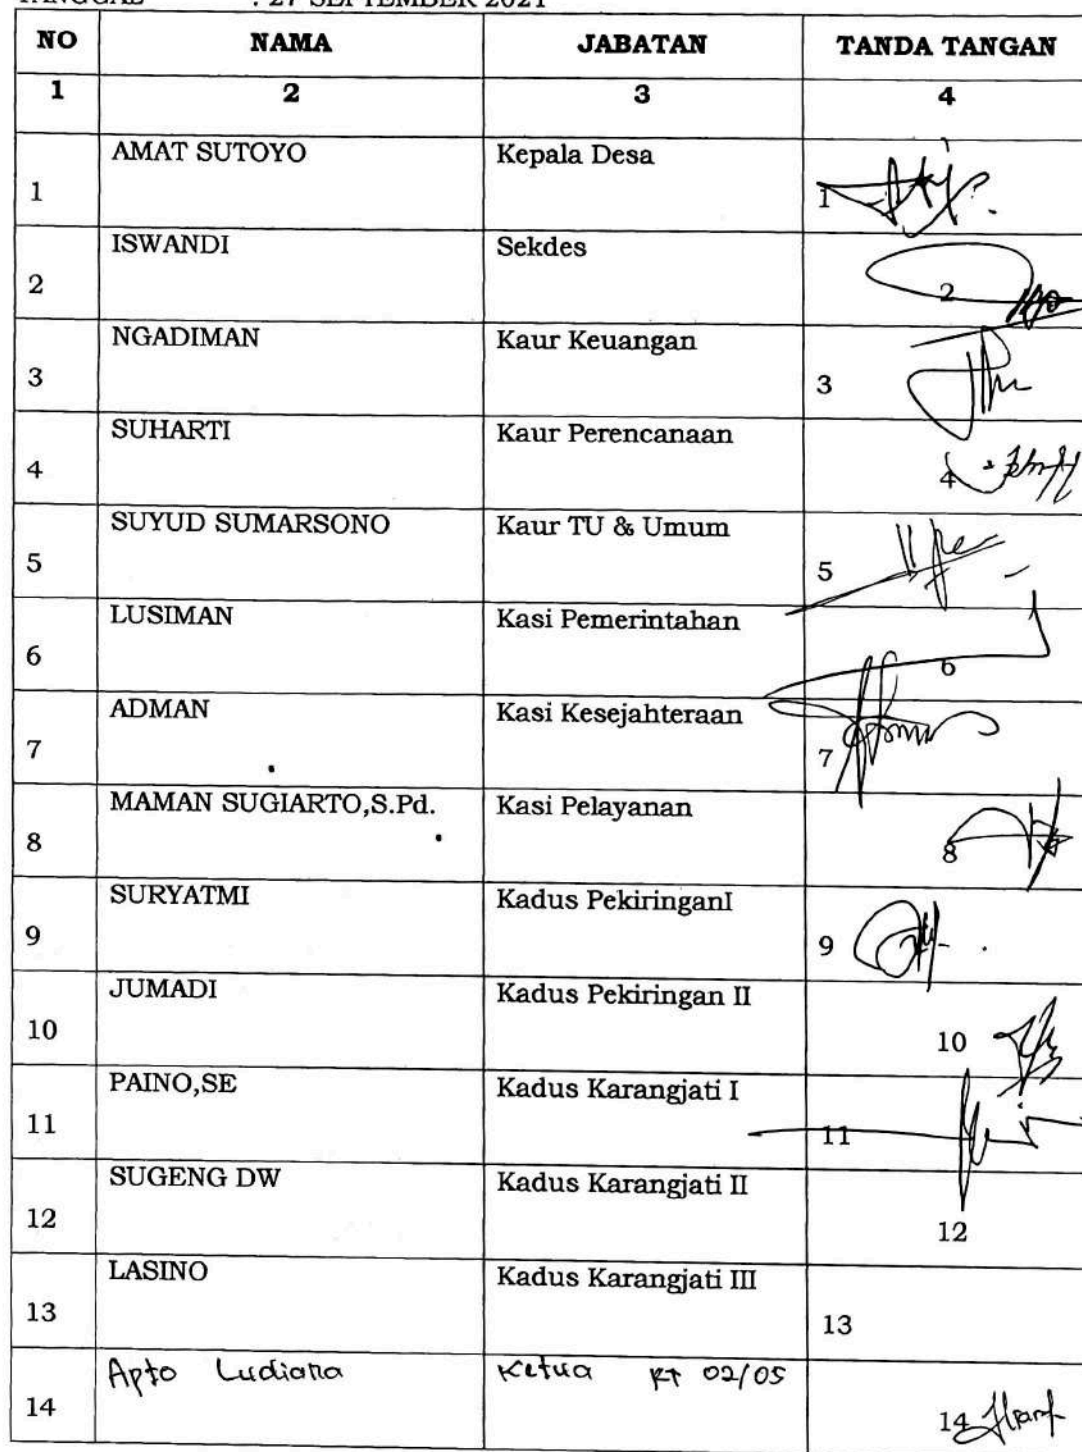 TANGGAL : 27 SEPTEMBER 2021
NO NAMA JABATAN TANDA TANGAN
1 2 3 4
1 AMAT SUTOYO Kepala Desa 1
2 ISWANDI Sekdes 2
3 NGADIMAN Kaur Keuangan 3
4 SUHARTI Kaur Perencanaan 4
5 SUYUD SUMARSONO Kaur TU & Umum 5
6 LUSIMAN Kasi Pemerintahan 6
7 ADMAN Kasi Kesejahteraan 7
8 MAMAN SUGIARTO,S.Pd. Kasi Pelayanan 8
9 SURYATMI Kadus PekiringanI 9
10 JUMADI Kadus Pekiringan II 10
11 PAINO,SE Kadus Karangjati I 11
12 SUGENG DW Kadus Karangjati II 12
13 LASINO Kadus Karangjati III 13
14 Apto Ludiana Ketua RT 02/05 14